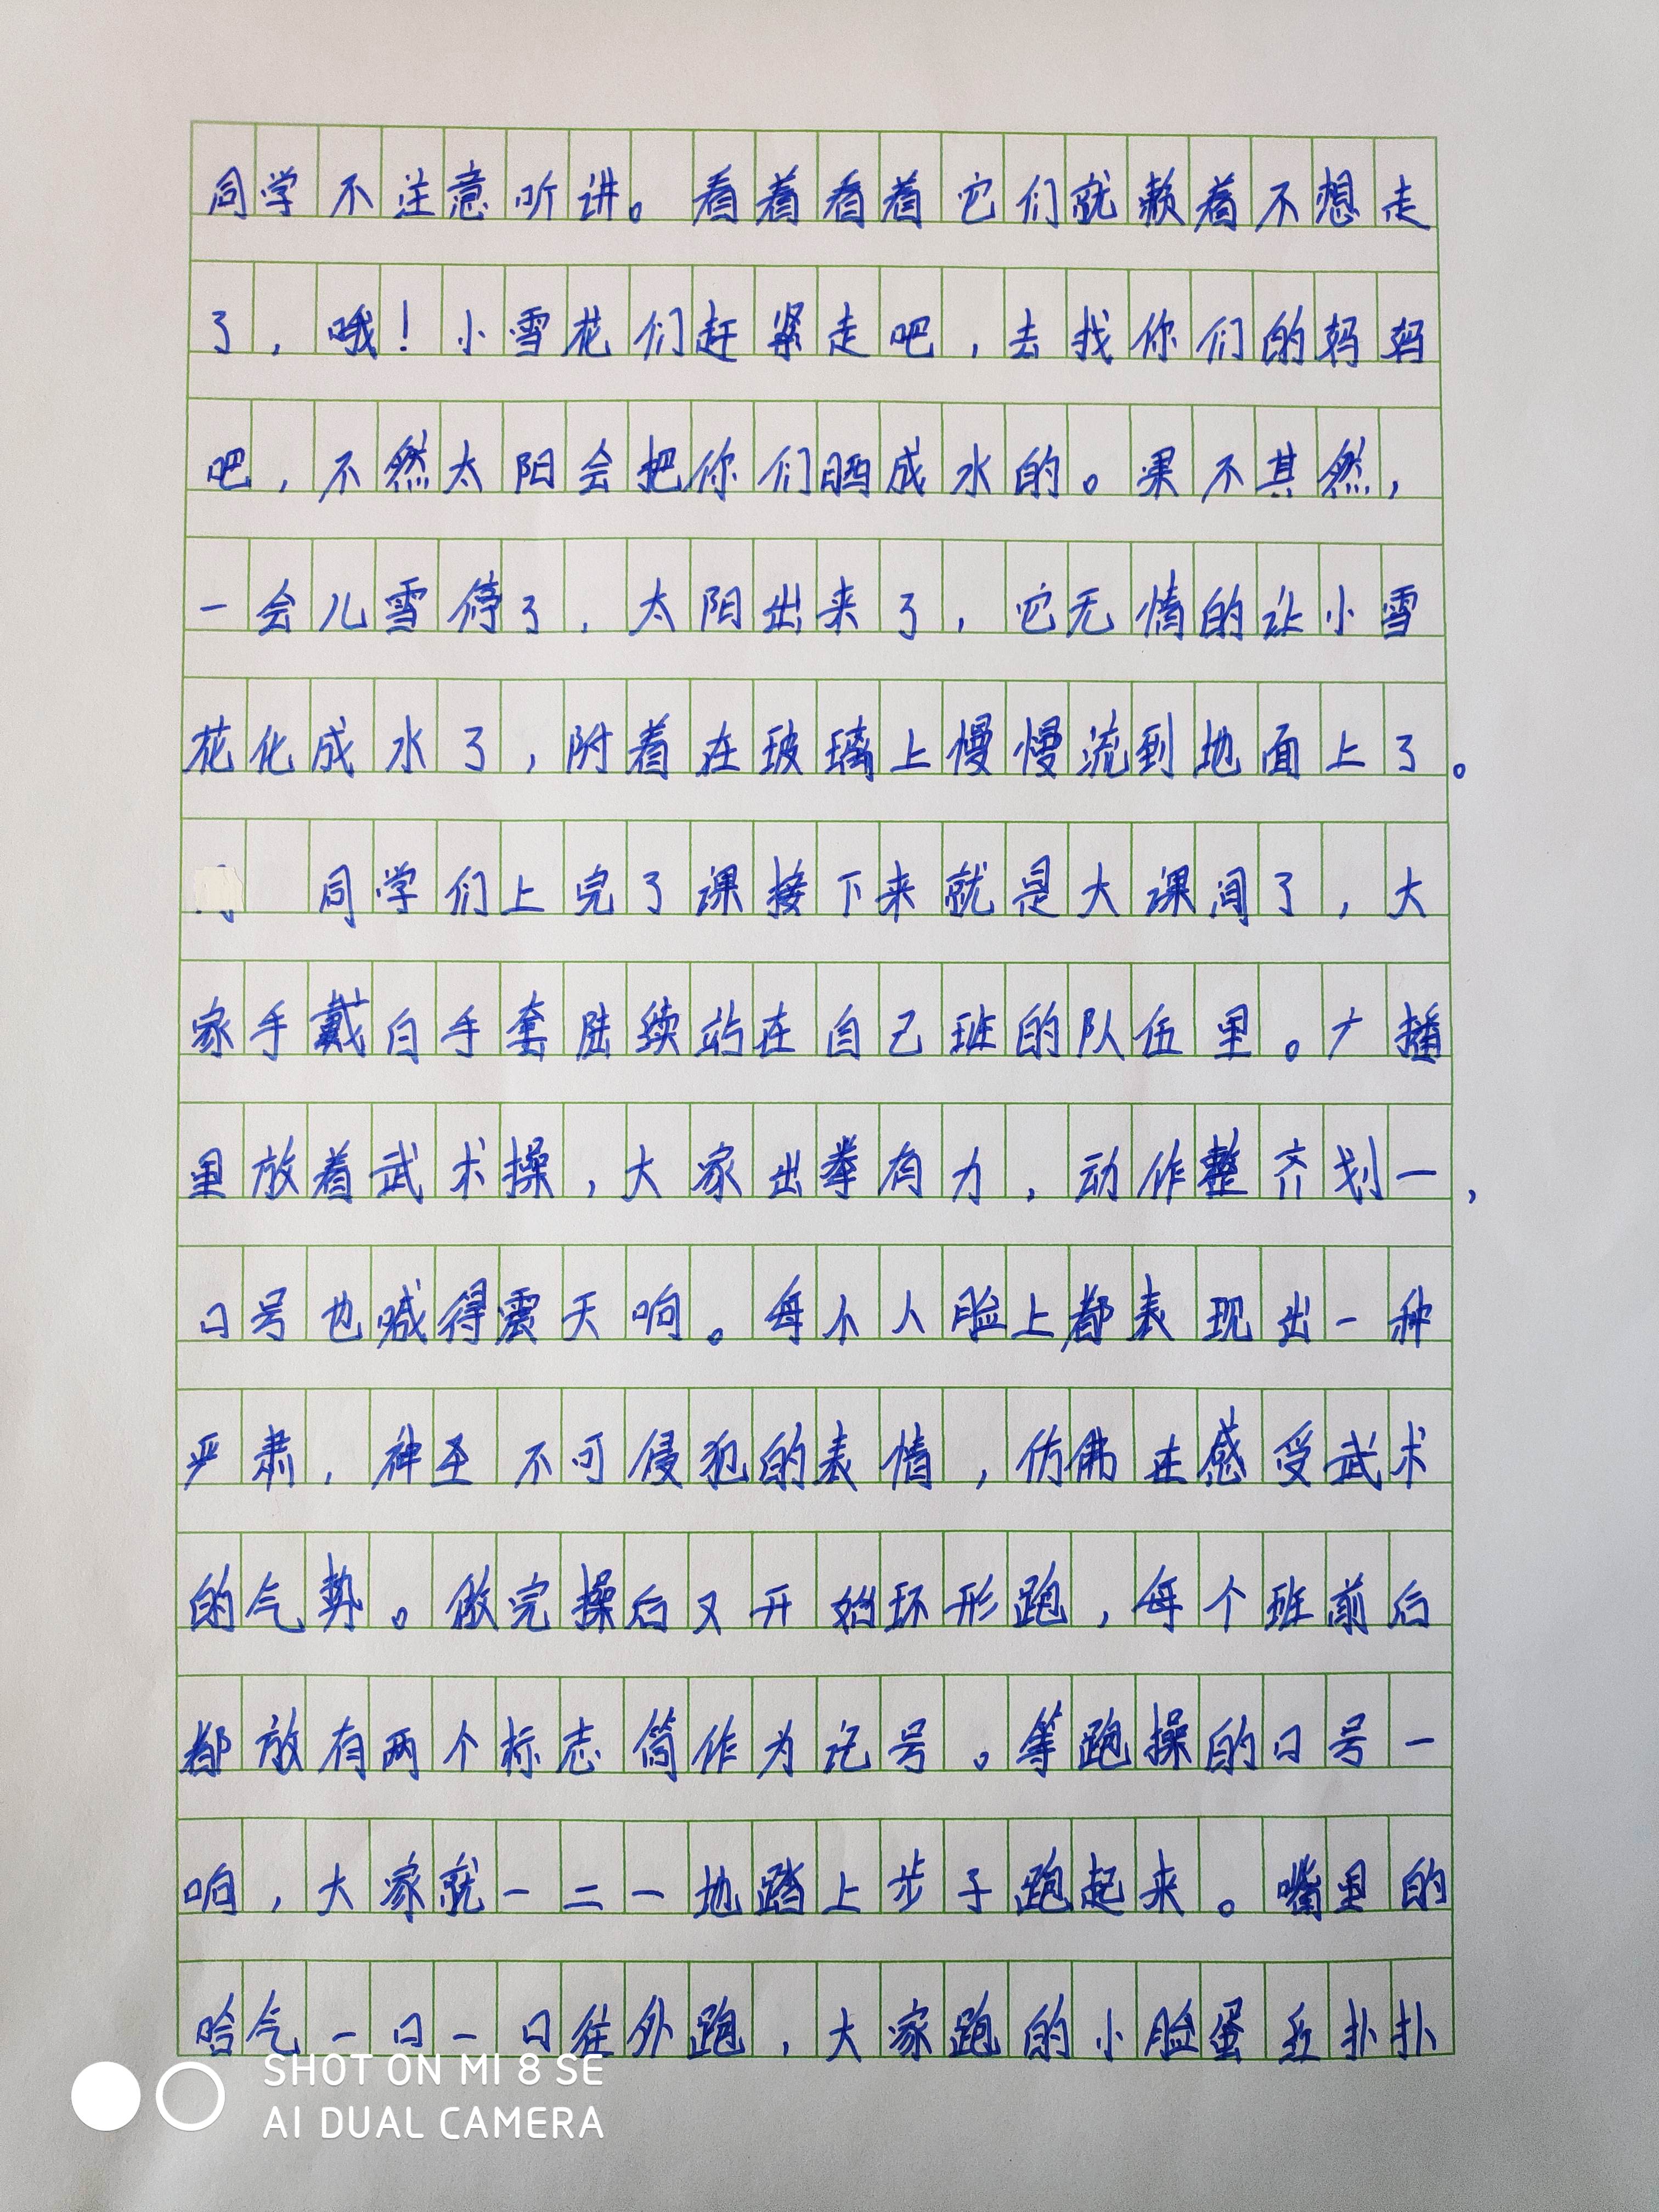 同学不注意听讲。看着看着它们就赖着不想走
了，哦！小雪花们赶紧走吧，去找你们的妈妈
吧，不然太阳会把你们晒成水的。果不其然，
一会儿雪停了，太阳出来了，它无情的让小雪
花化成水了，附着在玻璃上慢慢流到地面上了。
同学们上完了课接下来就是大课间了，大
家手戴白手套陆续站在自己班的队伍里。广播
里放着武术操，大家出拳有力，动作整齐划一，
口号也喊得震天响。每个人脸上都表现出一种
严肃，神圣不可侵犯的表情，仿佛在感受武术
的气势。做完操后又开始环形跑，每个班前后
都放有两个标志筒作为记号。等跑操的口号一
响，大家就一二一地踏上步子跑起来。嘴里的
哈气一口一口往外跑，大家跑的小脸蛋红扑扑
SHOT ON MI 8 SE
AI DUAL CAMERA